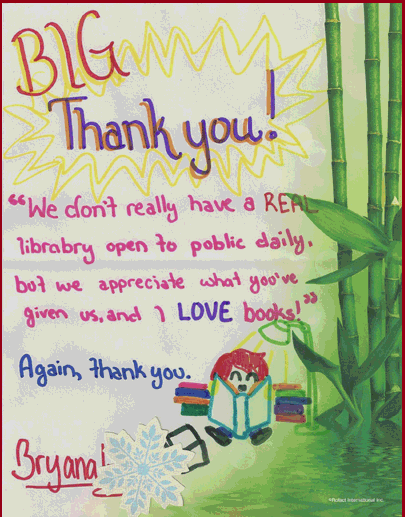 BIG
Thank you!
“We don't really have a REAL
librabry open to public daily,
but we appreciate what you've
given us, and I LOVE books!”
Again, thank you.
Bryana